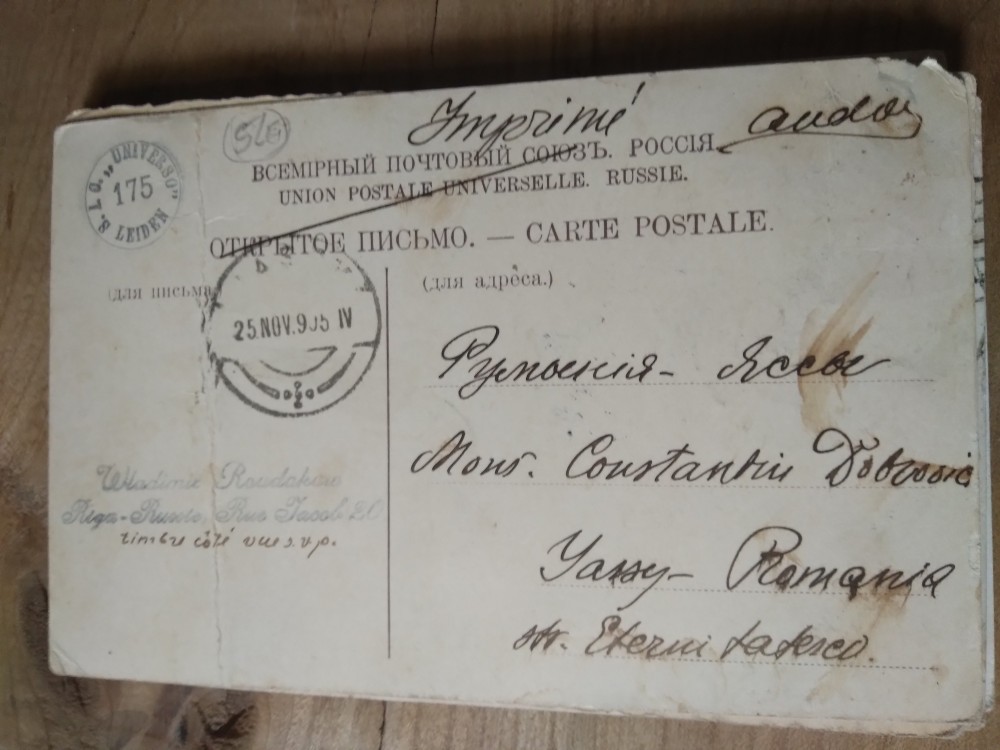 Imprimé
S. L. G. „UNIVERSO” LEIDEN
175
ВСЕМІРНЫЙ ПОЧТОВЫЙ СОЮЗЪ. РОССІЯ.
UNION POSTALE UNIVERSELLE. RUSSIE.
ОТКРЫТОЕ ПИСЬМО. — CARTE POSTALE.
(для письма
(для адреса.)
25.NOV.905 IV
Румынія - Яссы
Mons. Constantin
Yassy - Romania
str.
Riga-Russie, Rue Jacob 20
timbre côté vue s.v.p.